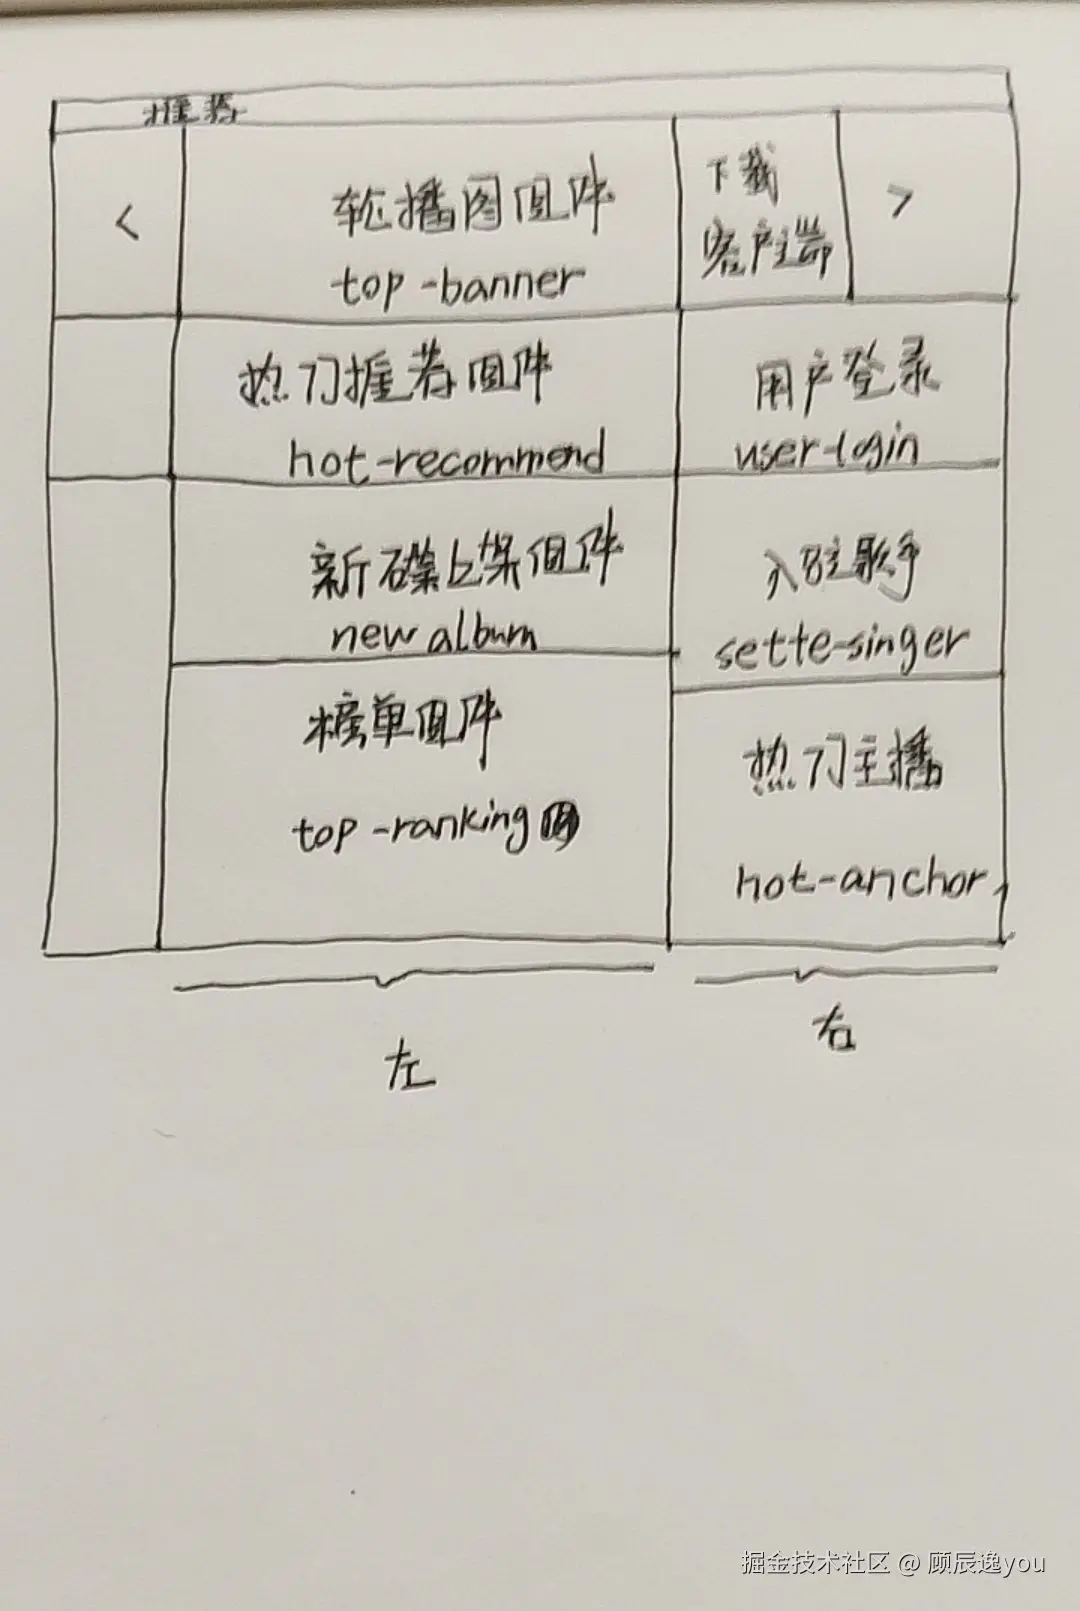 推荐
<
轮播图组件
top-banner
下载
客户端
>
热门推荐组件
hot-recommend
用户登录
user-login
新碟上架组件
new album
入驻歌手
sette-singer
榜单组件
top-ranking
热门主播
hot-anchor
左
右
掘金技术社区 @ 顾辰逸you